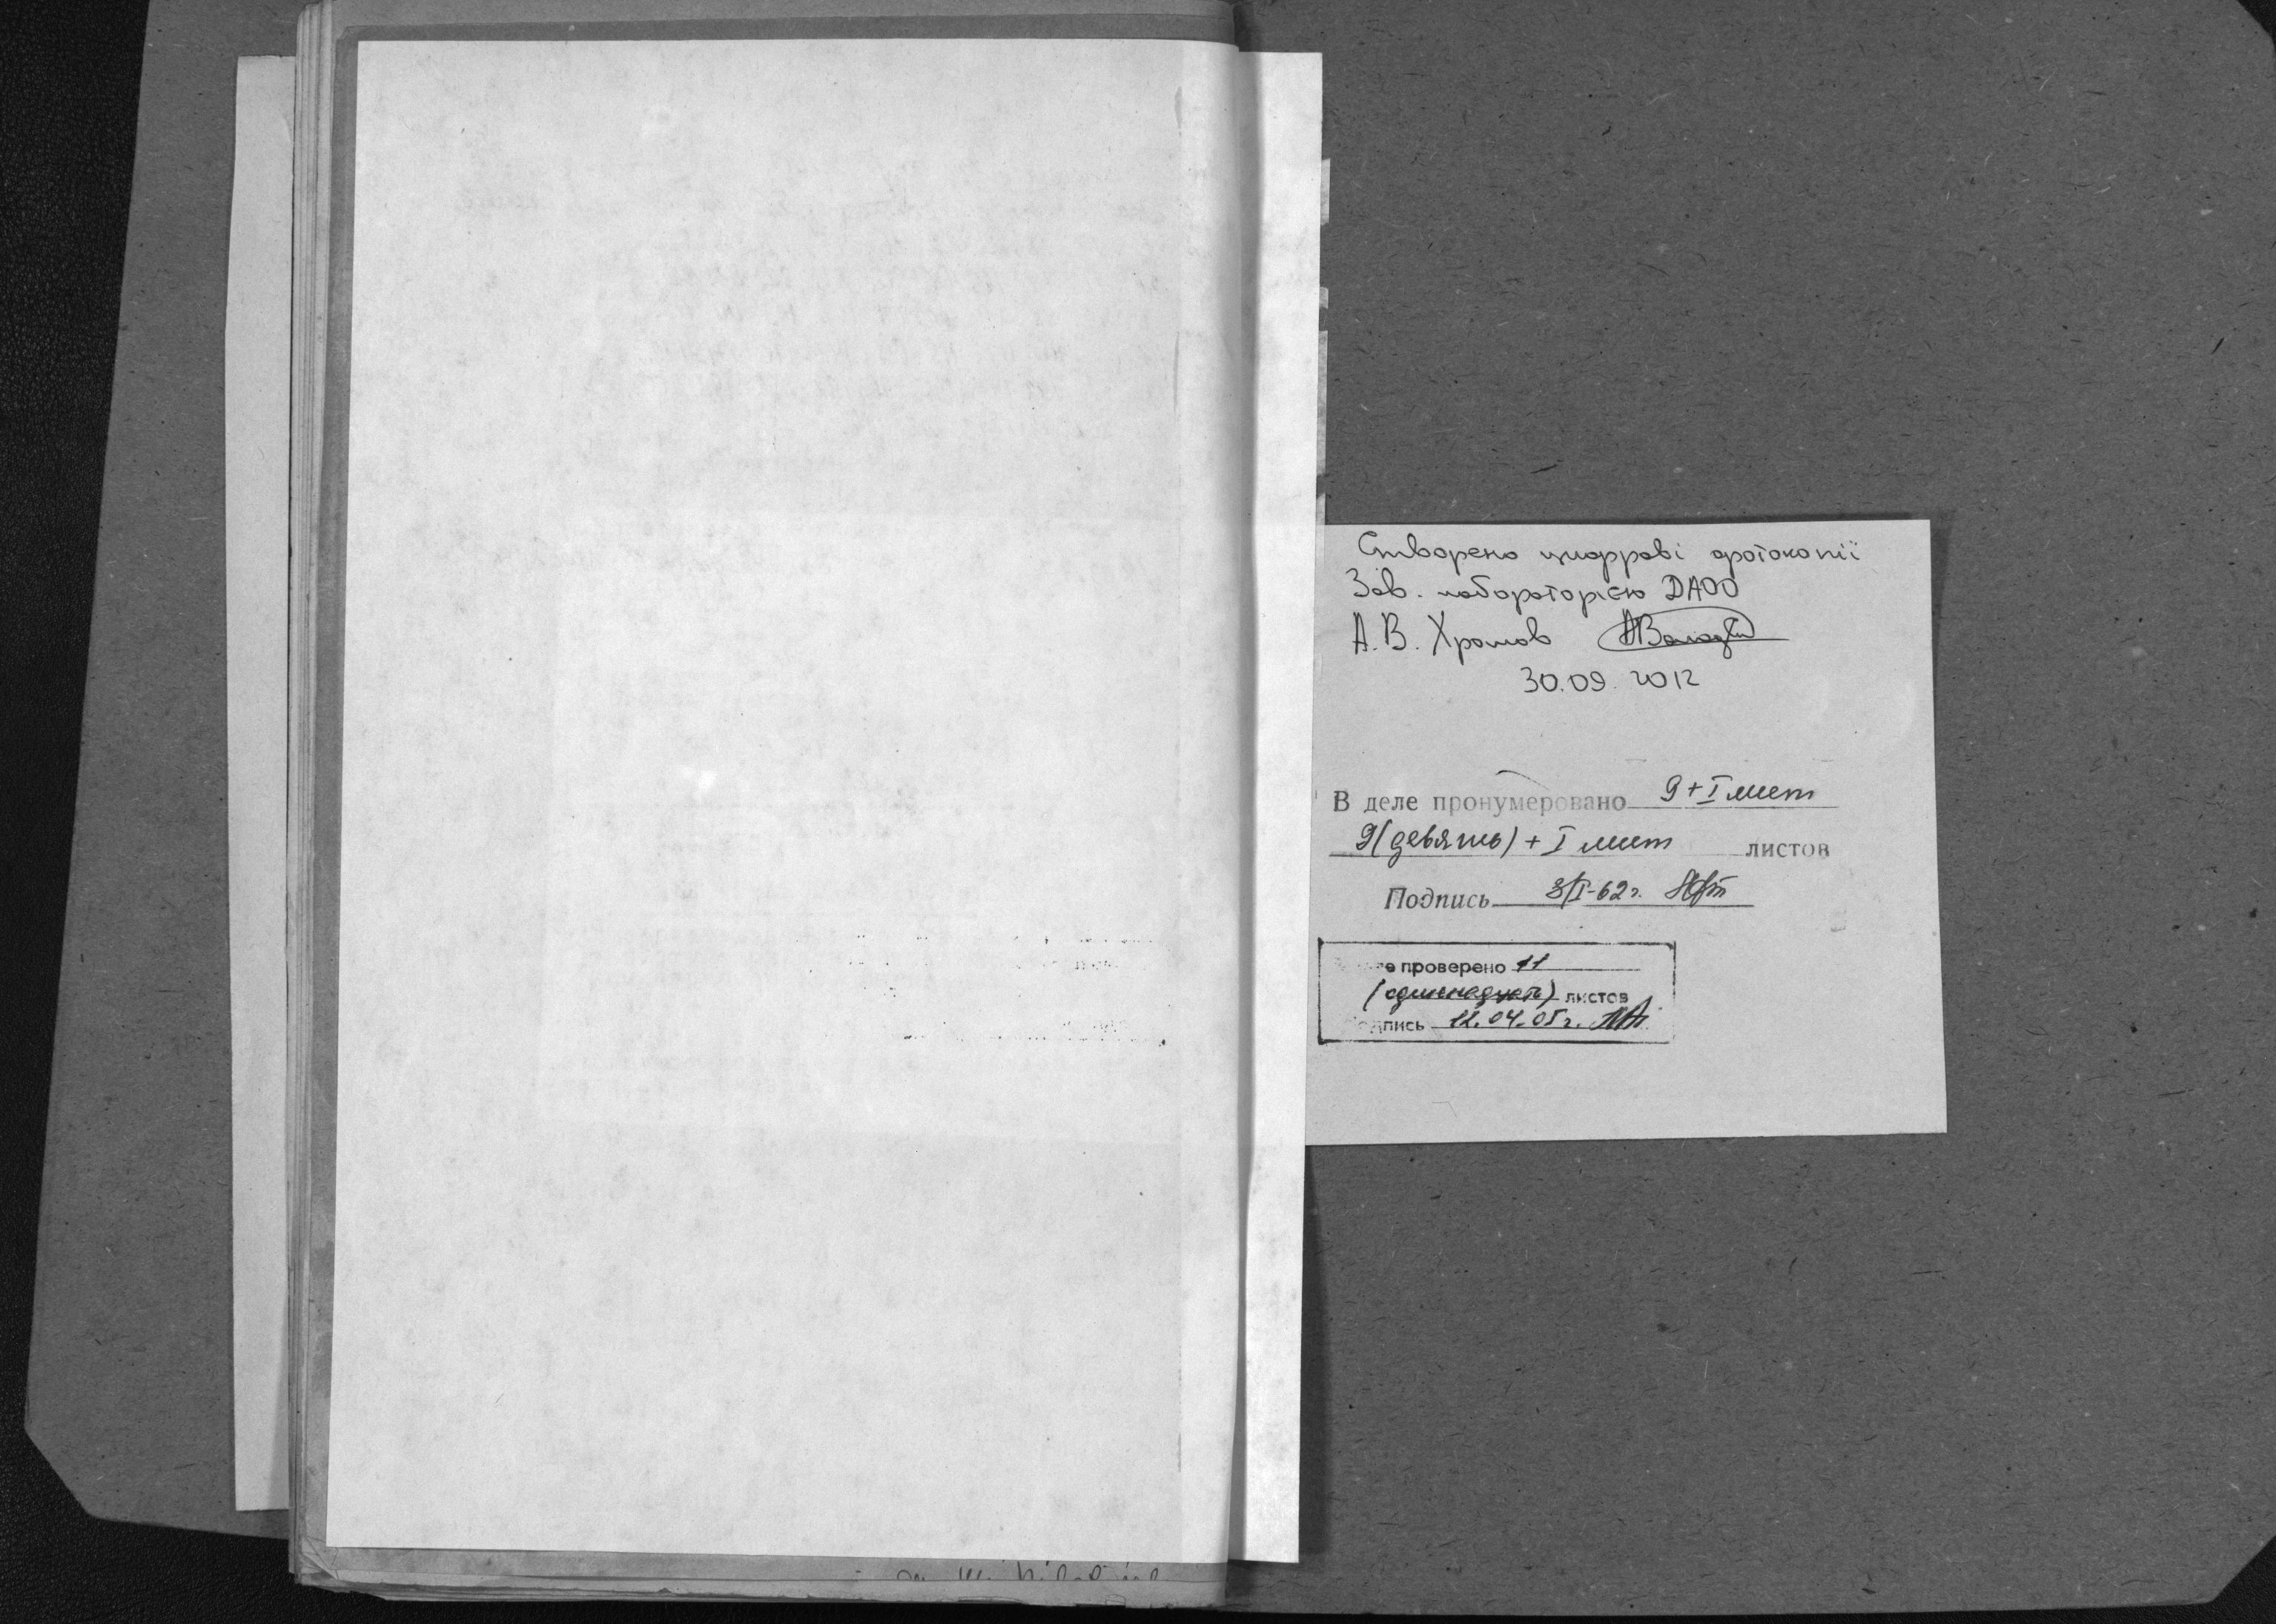 Створено цифрові фотокопії
Зав. лабораторією ДАОО
А.В. Хромов
30.09.2012
В деле пронумеровано 9+I лист
9(девять)+I лист листов
Подпись 3/I-62г.
проверено 11
(одиннадцать) листов
12.04.05г.